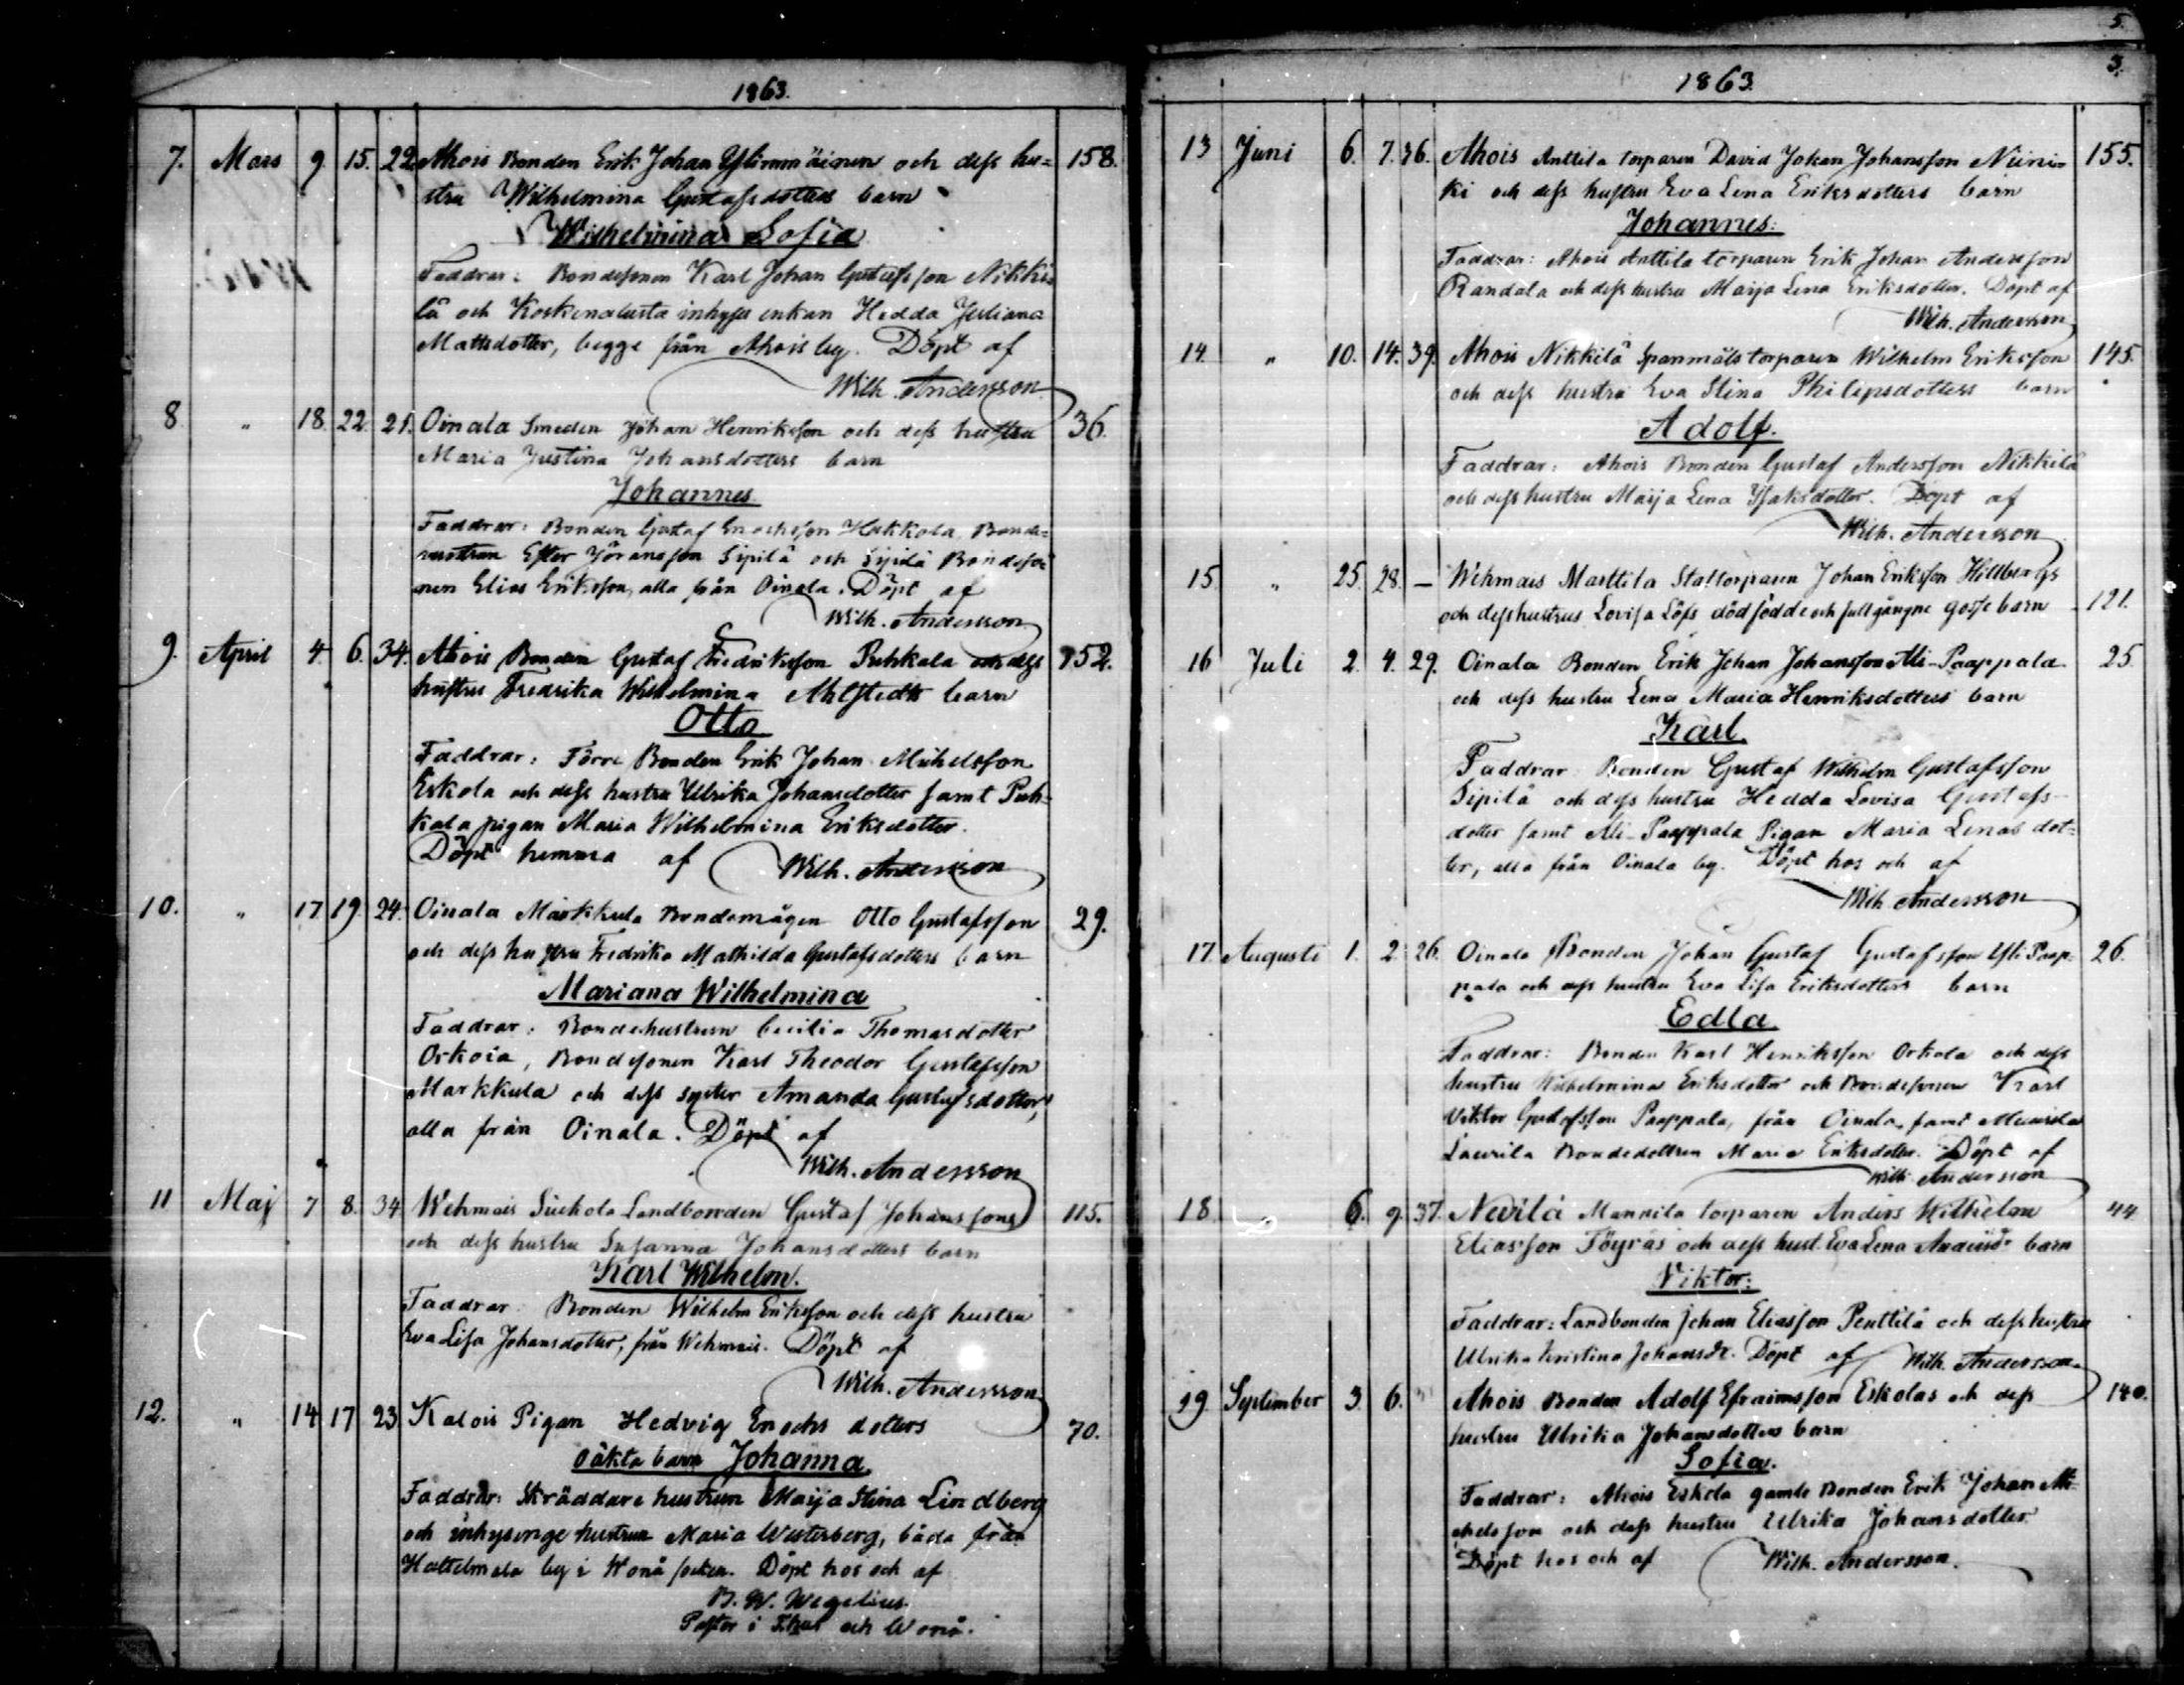 1863.
7. Mars 9. 15. 22. Ahois Bonden Erik Johan Ylimmäinen och dess hu= 158.
stru Wilhelmina Gustafsdotters barn
Wilhelmina Sofia
Faddrar: Bondesonen Karl Johan Gustafsson Nikki=
lä och Koskenalusta inhyses enkan Hedda Juliana
Mattsdotter, begge från Ahois by. Döpt af
Wilh. Andersson
8. " 18. 22. 21. Oinala Smeden Johan Henriksson och dess hustru 36.
Maria Justina Johansdotters barn
Johannes
Faddrar: Bonden Gustaf Enochsson Hakkola, Bonde=
hustrun Ester Göransson Sipilä och Sipilä Bondeso=
nen Elias Eriksson, alla från Oinala. Döpt af
Wilh. Andersson
9. April 4. 6. 34. Ahois Bonden Gustaf Fredriksson Puhkala och dess 152.
hustrus Fredrika Wilhelmina Ahlstedts barn
Otto
Faddrar: Förre Bonden Erik Johan Michelsson
Eskola och dess hustru Ulrika Johansdotter samt Puh=
kala pigan Maria Wilhelmina Eriksdotter.
Döpt hemma af Wilh. Andersson
10. " 17 19. 24. Oinala Markkula Bondemågen Otto Gustafsson 29.
och dess hustru Fredrika Mathilda Gustafsdotters barn
Mariana Wilhelmina
Faddrar: Bondehustrun Cecilia Thomasdotter
Orkola, Bondesonen Karl Theodor Gustafsson
Markkula och dess syster Amanda Gustafsdotter,
alla från Oinala. Döpt af
Wilh. Andersson
11 Maj 7 8. 34 Wehmais Suckola Landbonden Gustaf Johanssons 115.
och dess hustru Susanna Johansdotters barn
Karl Wilhelm.
Faddrar: Bonden Wilhelm Eriksson och dess hustru
Eva Lisa Johansdotter, från Wehmais. Döpt af
Wilh. Andersson
12. " 14 17 23 Kalois Pigan Hedvig Enochsdotters 70.
oäkta barn Johanna.
Faddrar: Skräddare hustrun Maija Stina Lindberg
och inhysinge hustrun Maria Westerberg, båda från
by i Wonå socken. Döpt hos och af
B. W. Wegelius.
Pastor i och Wonå.
5.
3.
1863.
13 Juni 6. 7. 36. Ahois Anttila torparen David Johan Johansson Niini= 155.
ki och dess hustru Eva Lena Eriksdotters barn
Johannes.
Faddrar: Ahois Anttila torparen Erik Johan Andersson
Randala och dess hustru Maija Lena Eriksdotter. Döpt af
Wilh. Andersson
14. " 10. 14. 39. Ahois Nikkilä Spanmåls torparen Wilhelm Eriksson 145.
och dess hustru Eva Stina Philipsdotters barn
Adolf.
Faddrar: Ahois Bonden Gustaf Andersson Nikkilä
och dess hustru Maija Lena Isaksdotter. Döpt af
Wilh. Andersson
15. " 25. 28. — Wehmais Marttila Stattorparen Johan Eriksson Hillbergs
och dess hustrus Lovisa Löfs dödfödde och fullgångne gosse barn 121.
16 Juli 2. 4. 29. Oinala Bonden Erik Johan Johansson Ali-Paappala 25.
och dess hustru Lena Maria Henriksdotters barn
Karl.
Faddrar: Bonden Gustaf Wilhelm Gustafsson
Sipilä och dess hustru Hedda Lovisa Gustafs-
dotter samt Ali-Paappala Pigan Maria Lenasdot=
ter, alla från Oinala by. Döpt hos och af
Wilh. Andersson
17 Augusti 1. 2. 26. Oinala Bonden Johan Gustaf Gustafsson Yli Paap- 26.
pala och dess hustru Eva Lisa Eriksdotters barn
Edla
Faddrar: Bonden Karl Henriksson Orkola och dess
hustru Wilhelmina Eriksdotter och Bondesonen Karl
Viktor Gustafsson Paappala, från Oinala, samt
Laurila Bondedottren Maria Eriksdotter. Döpt af
Wilh. Andersson
18. " 6. 9. 37. Nevilä Mannila torparen Anders Wilhelm 44.
Eliasson Töyräs och dess hust. Eva Lena barn
Viktor.
Faddrar: Landbonden Johan Eliasson Penttilä och dess hustru
Ulrika Kristina Johansdr. Döpt af Wilh. Andersson
19 September 3. 6. Ahois Bonden Adolf Efraimsson Eskolas och dess 140.
hustru Ulrika Johansdotters barn
Sofia.
Faddrar: Ahois Eskola gamle Bonden Erik Johan Mi-
chelsson och dess hustru Ulrika Johansdotter
Döpt hos och af Wilh. Andersson.